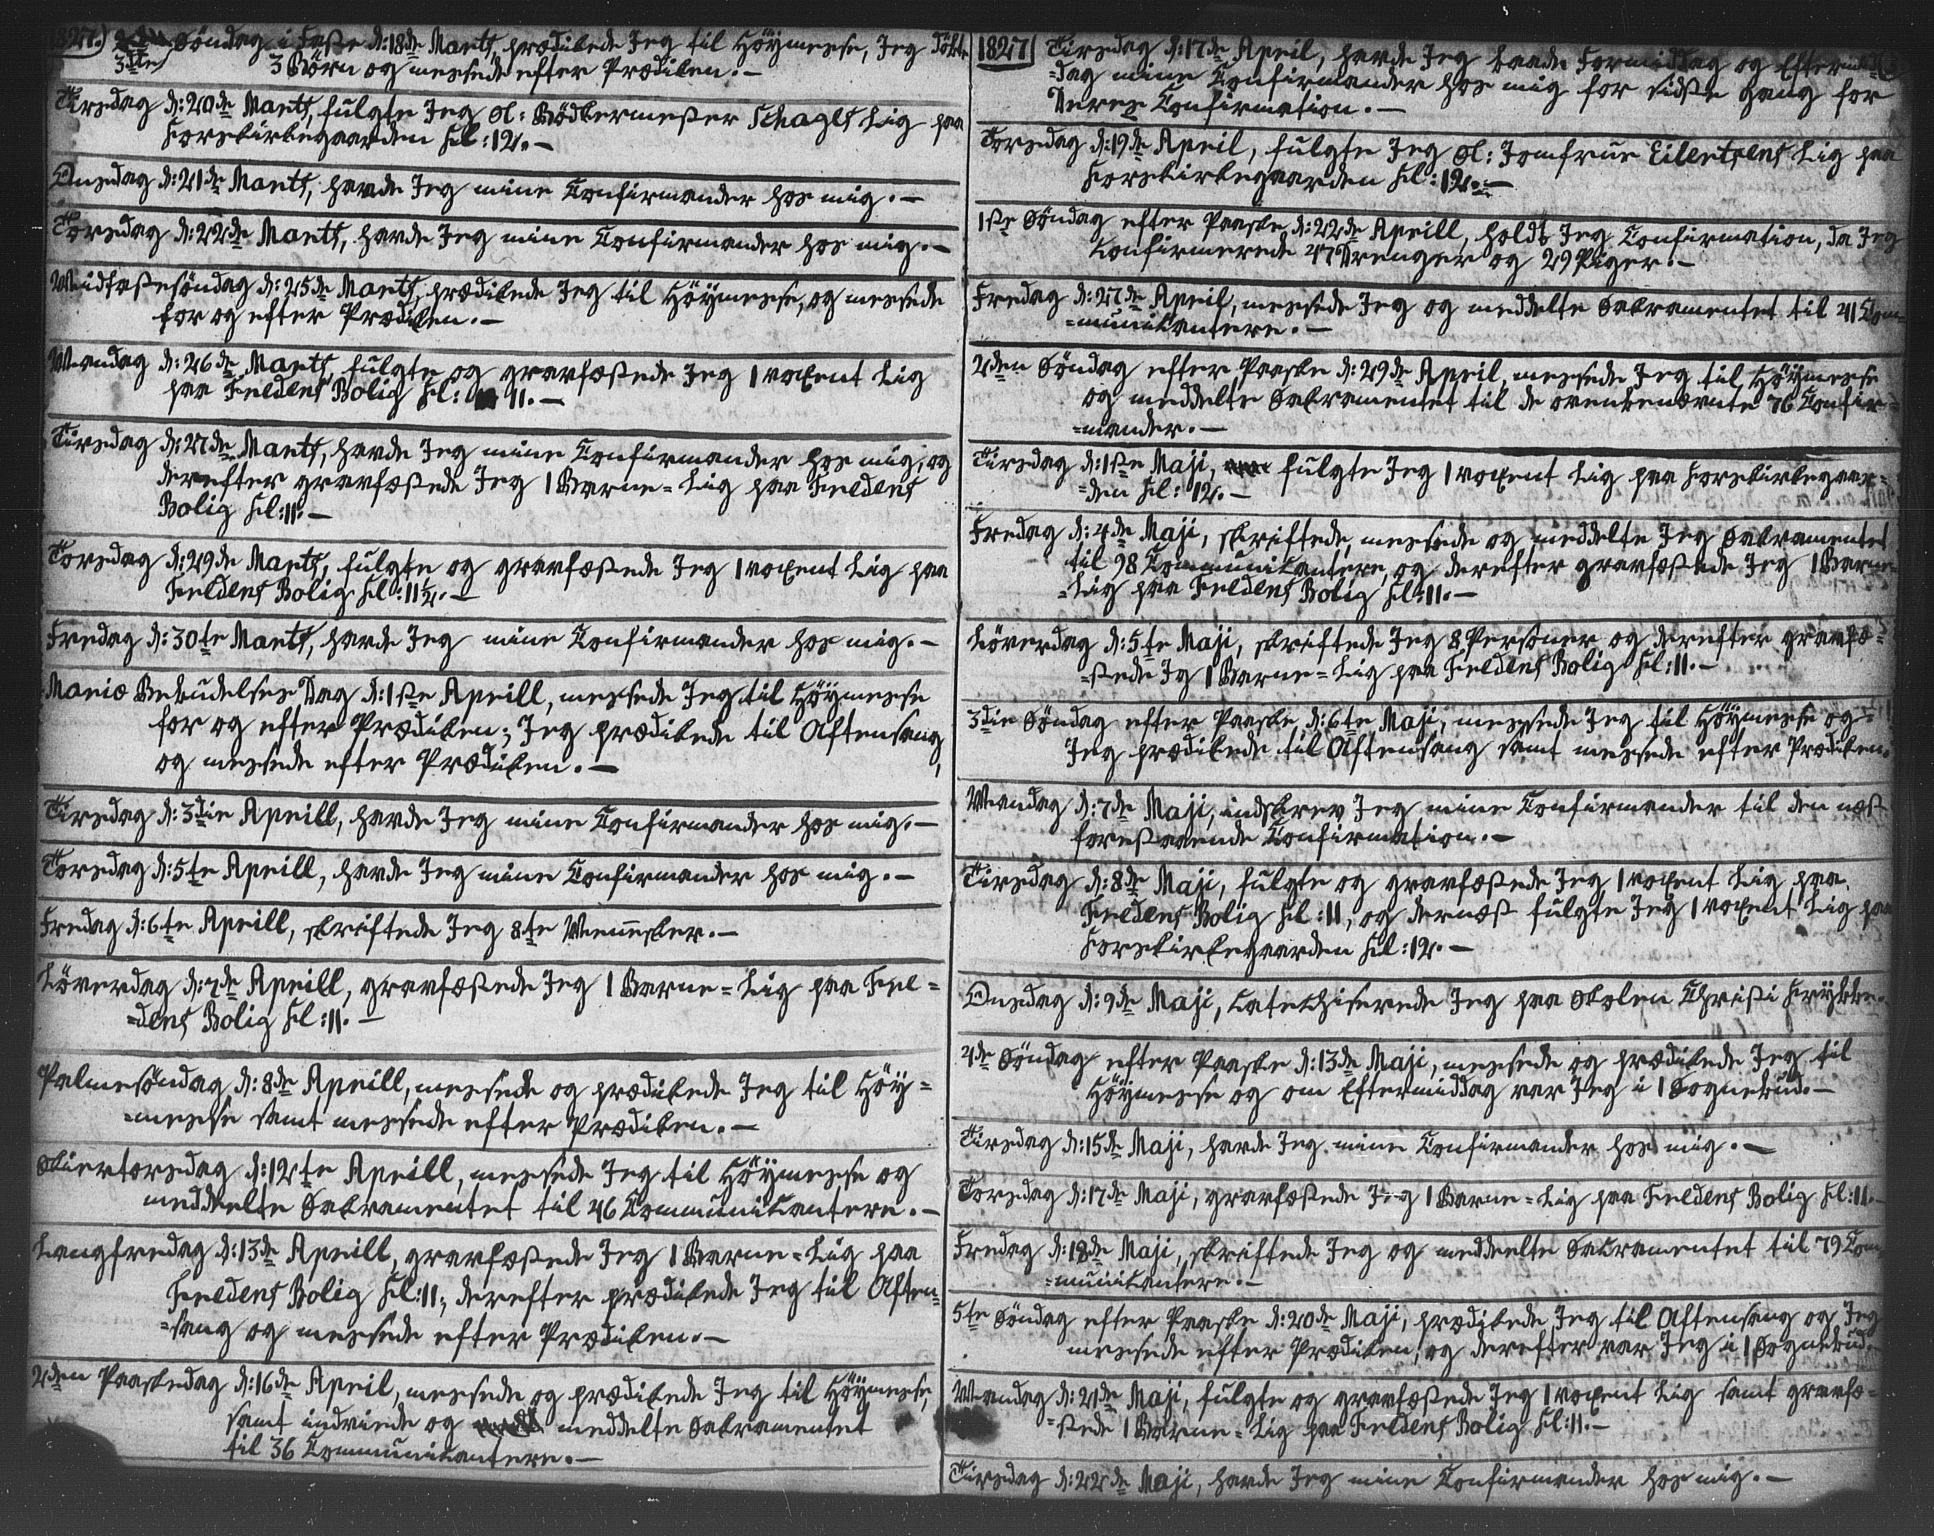 1827. 3die Søndag i Faste d: 18de Marts, prædikede Jeg til Høymesse, Jeg døbte
3 Børn og messede efter Prædiken. —
Tirsdag d: 20de Marts, fulgte Jeg Sl: Bödkermester Schagls Lig paa
Forskirkegaarden Kl: 12. —
Onsdag d: 21de Marts, havde Jeg mine Confirmander hos mig. —
Torsdag d: 22de Marts, havde Jeg mine Confirmander hos mig. —
Midfastesøndag d: 25de Marts, prædikede Jeg til Høymesse, og messede
for og efter Prædiken. —
Mandag d: 26de Marts, fulgte og gravfæstede Jeg 1 voxent Lig
paa Feldens Bolig Kl: 11. —
Tirsdag d: 27de Marts, havde Jeg mine Confirmander hos mig, og
derefter gravfæstede Jeg 1 Barne= Lig paa Feldens
Bolig Kl: 11. —
Torsdag d: 29de Marts, fulgte og gravfæstede Jeg 1 voxent Lig paa
Feldens Bolig Kl: 11½. —
Fredag d: 30te Marts, havde Jeg mine Confirmander hos mig. —
Mariæ Bebudelses Dag d: 1ste Aprill, messede Jeg til Høymesse
for og efter Prædiken; Jeg prædikede til Aftensang,
og messede efter Prædiken. —
Tirsdag d: 3die Aprill, havde Jeg mine Confirmander hos mig. —
Torsdag d: 5te Aprill, havde Jeg mine Confirmander hos mig. —
Fredag d: 6te Aprill, skriftede Jeg 8te Mennesker. —
Løverdag d: 7de Aprill, gravfæstede Jeg 1 Barne= Lig paa Fel=
=dens Bolig Kl: 11. —
Palmesøndag d: 8de Aprill, messede og prædikede Jeg til Høy=
=messe samt messede efter Prædiken. —
Skiertorsdag d: 12te Aprill, messede Jeg til Høymesse og
meddeelte Sakramentet til 46 Communikantere. —
Langfredag d: 13de Aprill, gravfæstede Jeg 1 Barne= Lig paa
Feldens Bolig Kl: 11; derefter prædikede Jeg til Aften=
=sang og messede efter Prædiken. —
2den Paaskedag d: 16de April, messede og prædikede Jeg til Høymesse,
samt indviede og meddelte Sakramentet
til 36 Communikantere. —
1827 Tirsdag d: 17de April, havde Jeg baade Formiddag og Eftermid=
=dag mine Confirmander hos mig for sidste Gang for
Deres Confirmation. —
Torsdag d: 19de April, fulgte Jeg Sl: Jomfrue Eilertsens Lig paa
Forskirkegaarden Kl: 12. —
1ste Søndag efter Paaske d: 22de Aprill, holdt Jeg Confirmation, da Jeg
Confirmerede 47 Drenger og 29 Piger. —
Fredag d: 27de April, messede Jeg og meddelte Sakramentet til 41 Com=
=munikantere. —
2den Søndag efter Paaske d: 29de April, messede Jeg til Høymesse
og meddelte Sakramentet til de ovenbenævnte 76 Confir=
=mander. —
Tirsdag d: 1ste Maji, fulgte Jeg 1 voxent Lig paa Forskirkegaar=
=den Kl: 12. —
Fredag d: 4de Maji, skriftede, messede og meddelte Jeg Sakramentet
til 98 Communikantere, og derefter gravfæstede Jeg 1 Barne
=Lig paa Feldens Bolig Kl: 11. —
Løverdag d: 5te Maji, skriftede Jeg 8 Personer og derefter gravfæ=
=stede Jg 1 Barne= Lig paa Feldens Bolig Kl: 11. —
3die Søndag efter Paaske d: 6te Maji, messede Jeg til Høymesse og
Jeg prædikede til Aftensang samt messede efter Prædiken.
Mandag d: 7de Maji, indskrev Jeg mine Confirmander til den næst
forestaaende Confirmation. —
Tirsdag d: 8de Maji, fulgte og gravfæstede Jeg 1 voxent Lig paa
Feldens Bolig Kl: 11, og dernæst fulgte Jeg 1 voxent Lig paa
Forskirkegaarden Kl: 12. —
Onsdag d: 9de Maji, Catechiserede Jeg paa Skolen Christi Krybbe.
4de Søndag efter Paaske d: 13de Maji, messede og prædikede Jeg til
Høymesse og om Eftermiddag var Jeg i 1 Sognebud. —
Tirsdag d: 15de Maji, havde Jeg mine Confirmander hos mig. —
Torsdag d: 17de Maji, gravfæstede Jeg 1 Barne= Lig paa Feldens Bolig Kl: 11. —
Fredag d: 18de Maji, skriftede Jeg og meddeelte Sakramentet til 79 Com=
=munikantere. —
5te Søndag efter Paaske d: 20de Maji, prædikede Jeg til Aftensang og Jeg
messede efter Prædiken, og derefter var Jeg i 1 Sognebud.
Mandag d: 21de Maji, fulgte og gravfæstede Jeg 1 voxent Lig samt gravfæ=
=stede 1 Barne= Lig paa Feldens Bolig Kl: 11. —
Tirsdag d: 22de Maji, havde Jeg mine Confirmander hos mig. —